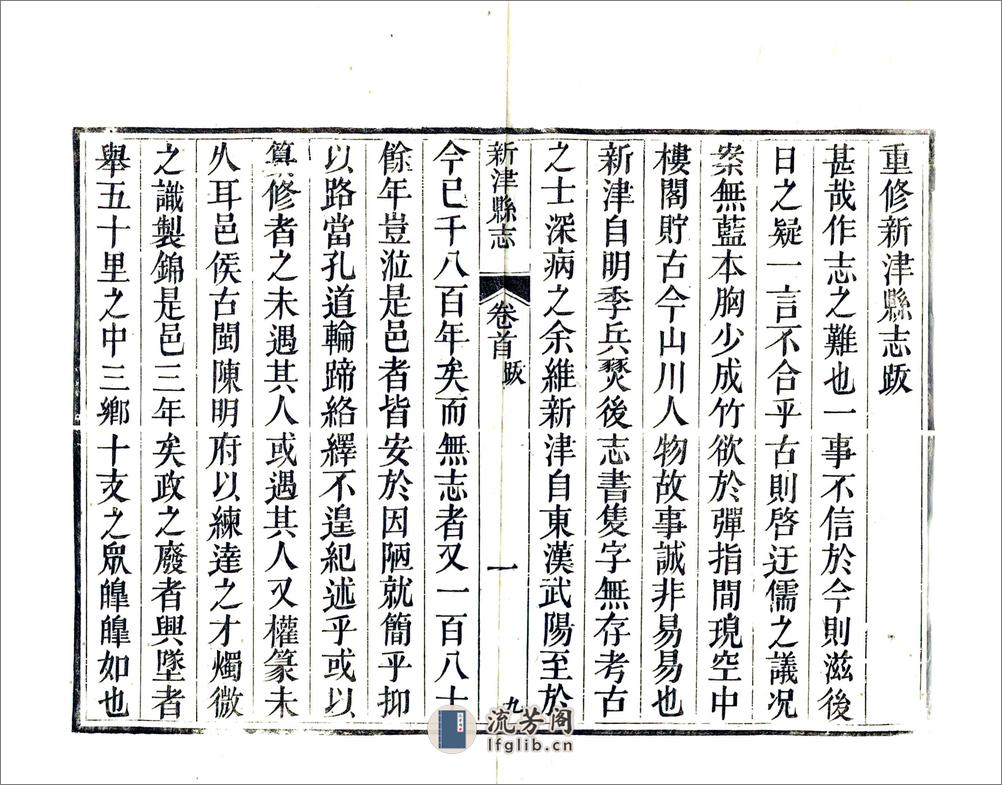 重修新津縣志跋
甚哉作志之難也一事不信於今則滋後
日之疑一言不合乎古則啓迂儒之議况
案無藍本胸少成竹欲於彈指間現空中
樓閣貯古今山川人物故事誠非易易也
新津自明季兵燹後志書隻字無存考古
之士深病之余維新津自東漢武陽至於
新津縣志
卷首 跋
一
九
今已千八百年矣而無志者又一百八十
餘年豈涖是邑者皆安於因陋就簡乎抑
以路當孔道輪蹄絡繹不遑紀述乎或以
篹修者之未遇其人或遇其人又權篆未
久耳邑侯古閩陳明府以練達之才燭微
之識製錦是邑三年矣政之廢者興墜者
舉五十里之中三鄉十支之眾皥皥如也
流芳阁
lfglib.cn